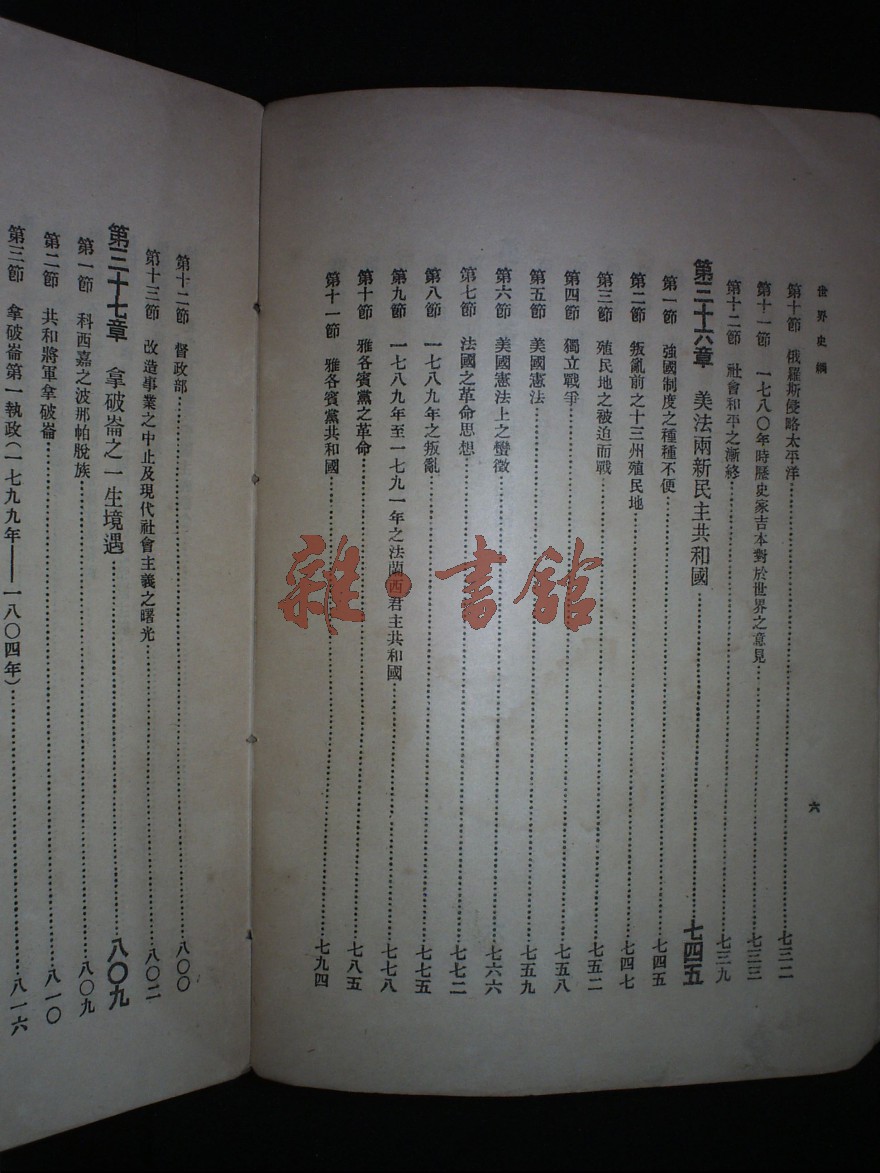 世界史綱
六
第十節 俄羅斯侵略太平洋……七三二
第十一節 一七八〇年時歷史家吉本對於世界之意見……七三三
第十二節 社會和平之漸終……七三九
第三十六章 美法兩新民主共和國……七四五
第一節 強國制度之種種不便……七四五
第二節 叛亂前之十三州殖民地……七四七
第三節 殖民地之被迫而戰……七五二
第四節 獨立戰爭……七五八
第五節 美國憲法……七五九
第六節 美國憲法上之蠻徵……七六六
第七節 法國之革命思想……七七二
第八節 一七八九年之叛亂……七七五
第九節 一七八九年至一七九一年之法蘭西君主共和國……七七八
第十節 雅各賓黨之革命……七八五
第十一節 雅各賓黨共和國……七九四
第十二節 督政部……八〇〇
第十三節 改造事業之中止及現代社會主義之曙光……八〇二
第三十七章 拿破崙之一生境遇……八〇九
第一節 科西嘉之波那帕脫族……八〇九
第二節 共和將軍拿破崙……八一〇
第三節 拿破崙第一執政(一七九九年——一八〇四年)……八一六
雜·書館